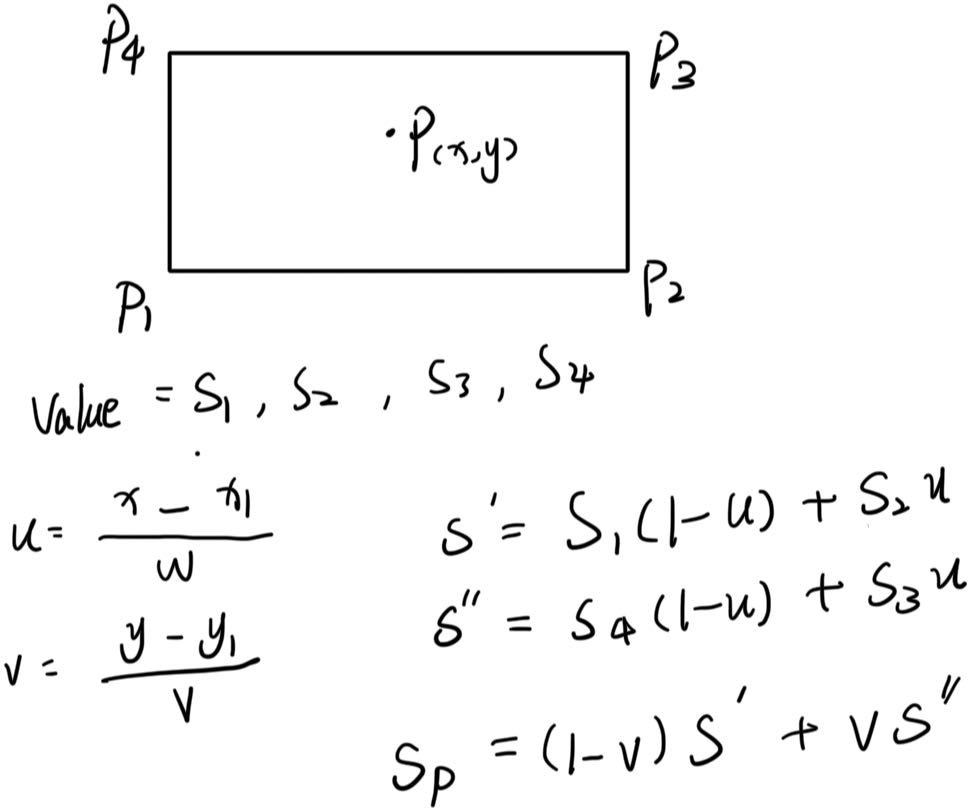 P4
P3
P(x,y)
P1
P2
Value = S1, S2, S3, S4
u = (x - x1) / W
S' = S1(1-u) + S2 u
S'' = S4(1-u) + S3 u
v = (y - y1) / V
Sp = (1-v) S' + v S''